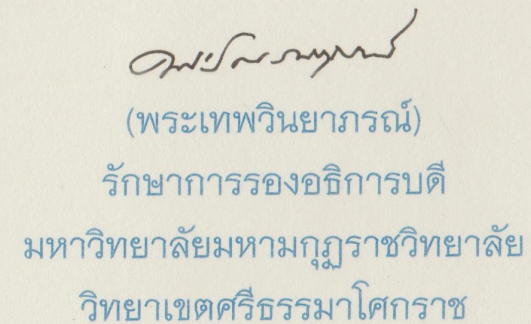 (พระเทพวินยาภรณ์)
รักษาการรองอธิการบดี
มหาวิทยาลัยมหามกุฏราชวิทยาลัย
วิทยาเขตศรีธรรมาโศกราช